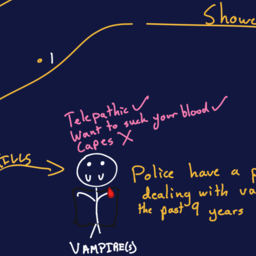 1
Telepathic ✓
Want to suck your blood ✓
Capes X
Police have a
dealing with
the past 9 years
VAMPIRE(S)